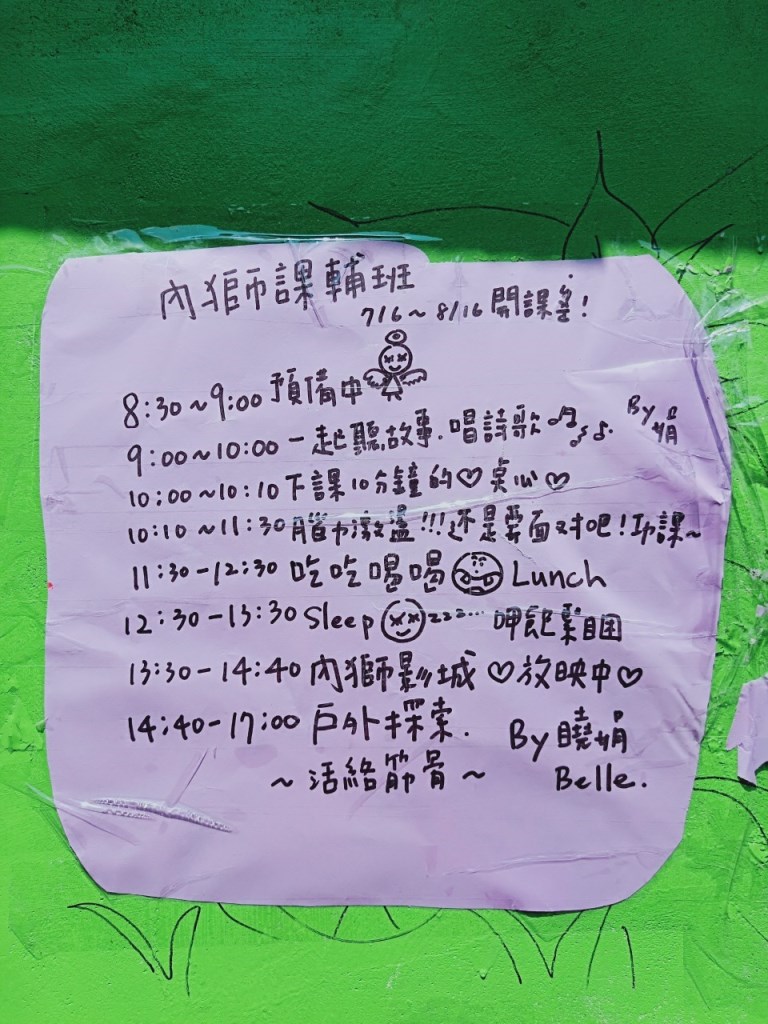 內獅課輔班
7/6~8/16 開課登!
8:30~9:00 預備中
9:00~10:00 一起聽故事.唱詩歌 By 娟
10:00~10:10 下課10分鐘的♡桌心♡
10:10~11:30 腦力激盪!!!還是要面对吧!功課~
11:30-12:30 吃吃喝喝 Lunch
12:30-13:30 Sleep zzz... 呷飽緊困
13:30-14:40 內獅影城♡放映中♡
14:40-17:00 戶外探索. By 曉娟
~活絡筋骨~ Belle.